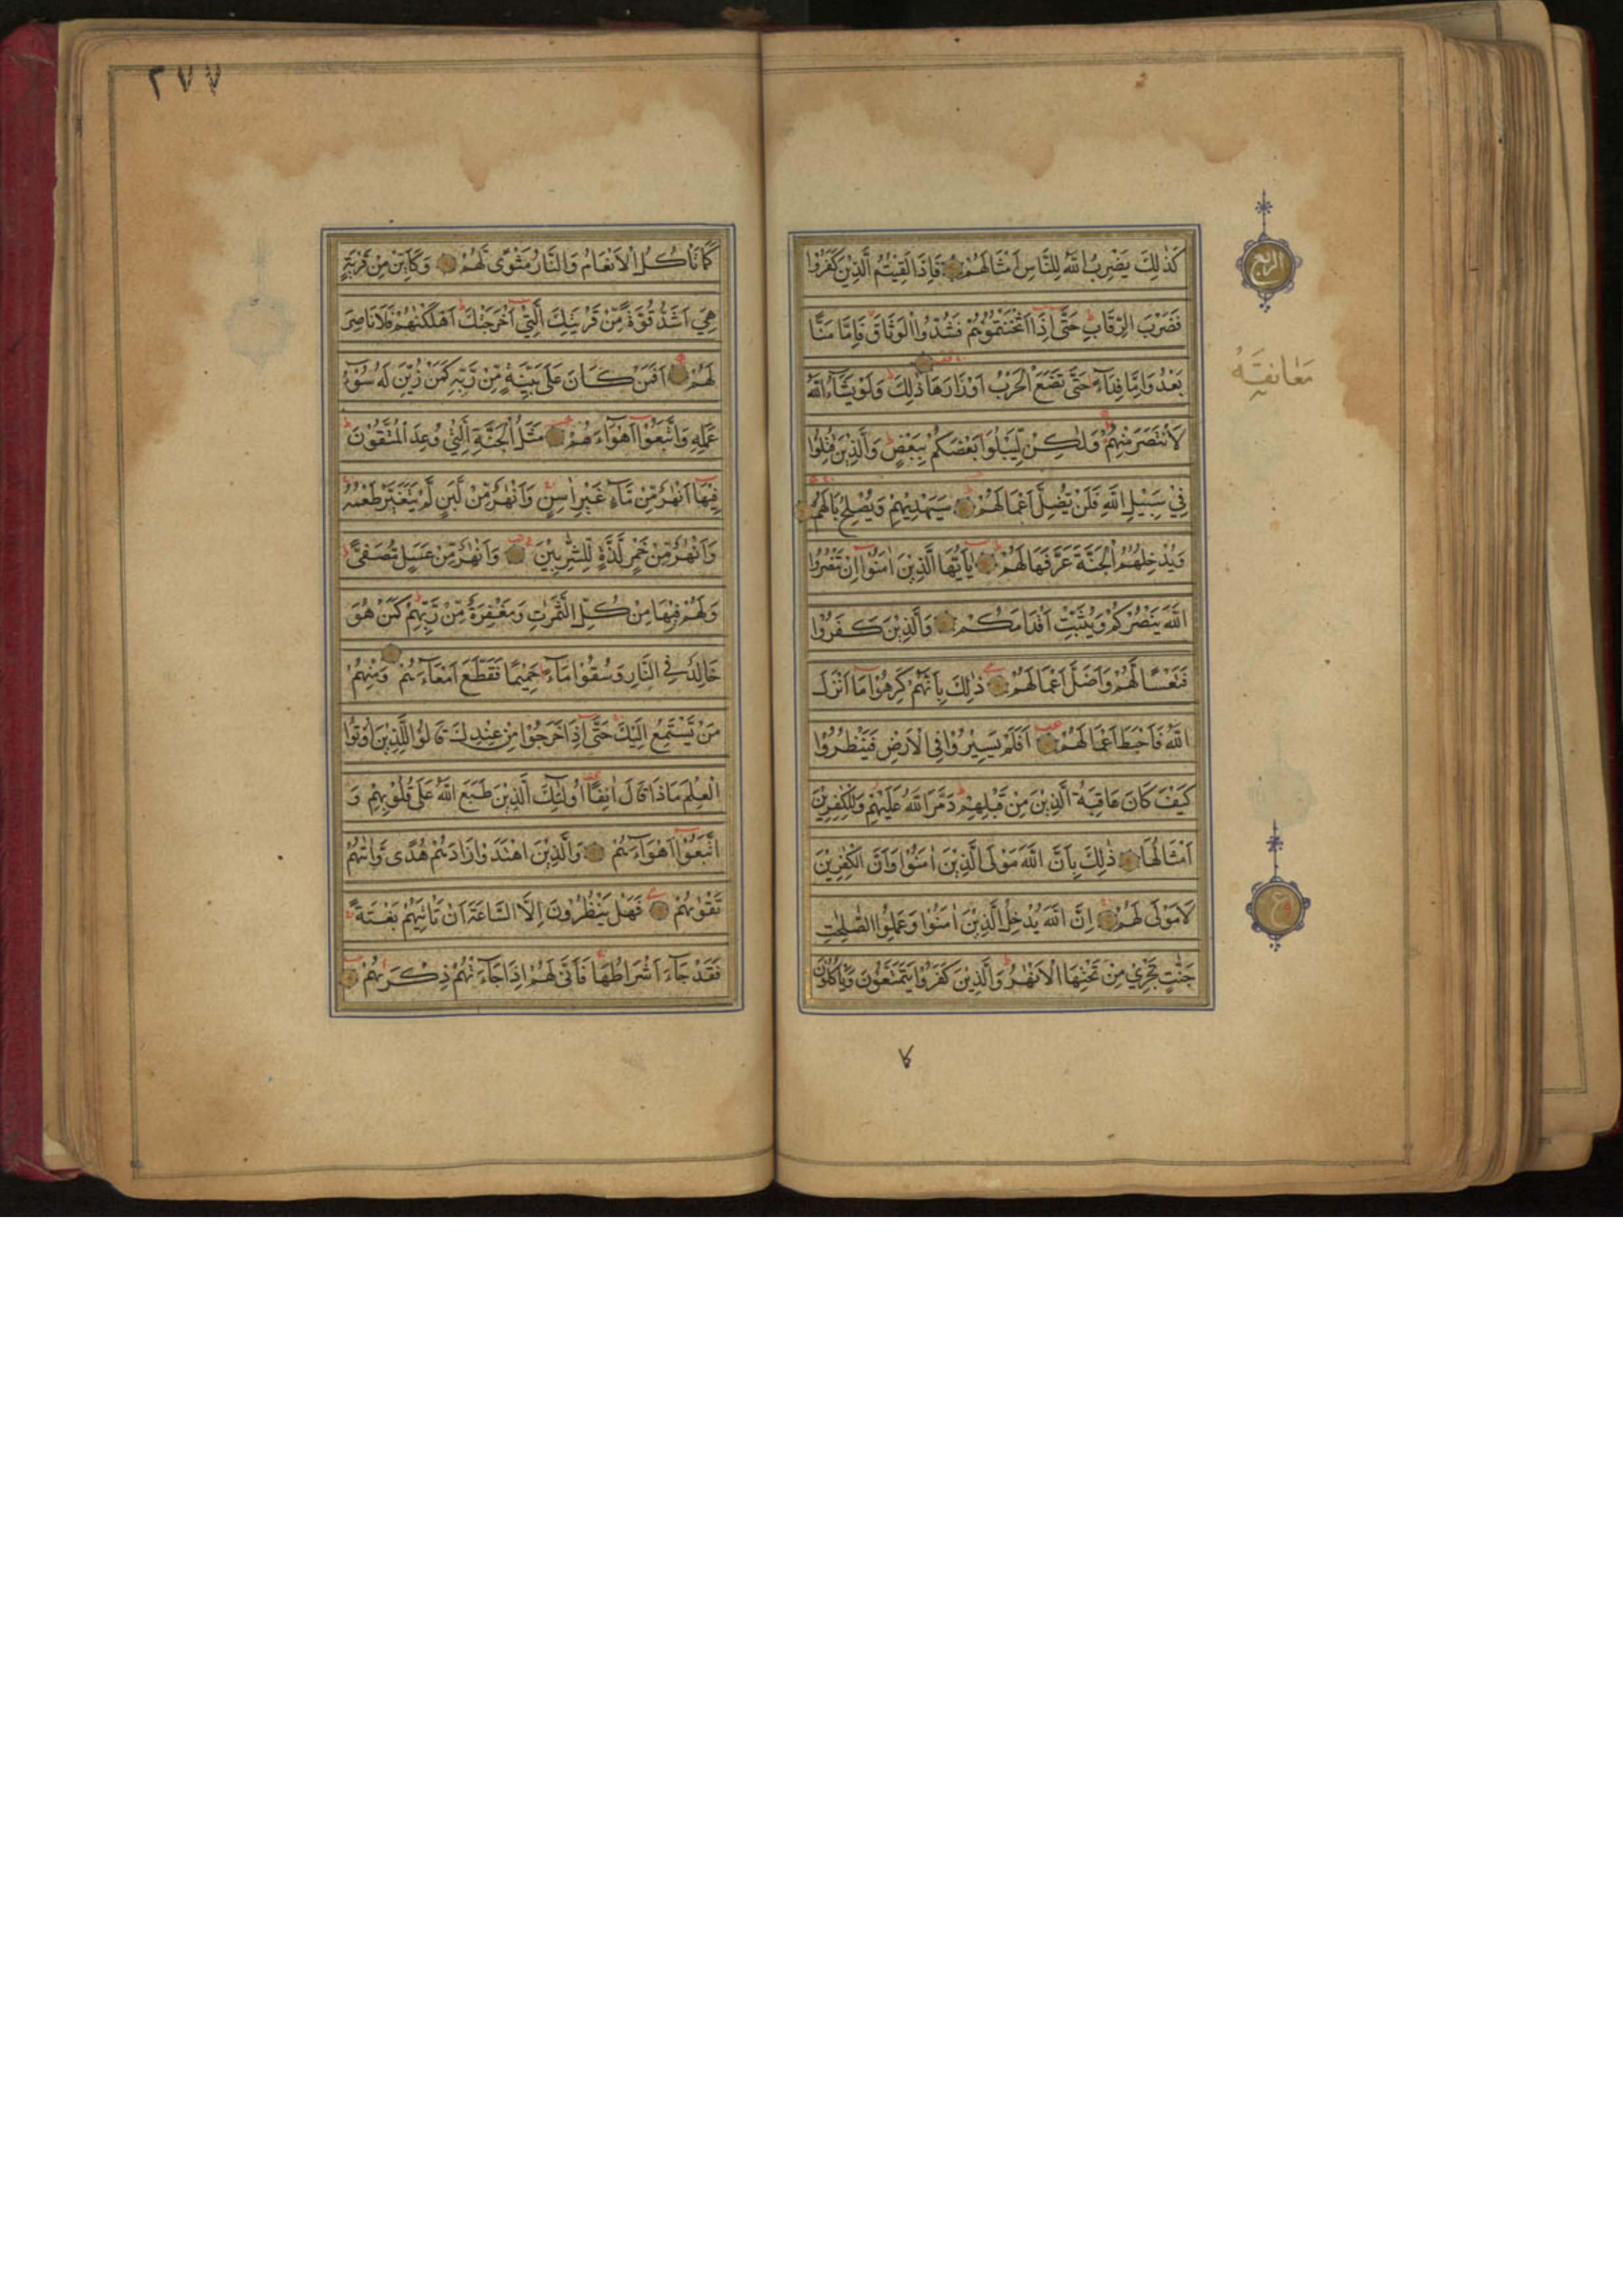 الربع
كَذٰلِكَ يَضْرِبُ اللّٰهُ لِلنَّاسِ اَمْثَالَهُمْ فَاِذَا لَقِيْتُمُ الَّذِيْنَ كَفَرُوْا
فَضَرْبَ الرِّقَابِ حَتّٰٓى اِذَآ اَثْخَنْتُمُوْهُمْ فَشُدُّوا الْوَثَاقَ فَاِمَّا مَنًّا
معانقه
بَعْدُ وَاِمَّا فِدَآءً حَتّٰى تَضَعَ الْحَرْبُ اَوْزَارَهَا ذٰلِكَ وَلَوْ يَشَآءُ اللّٰهُ
لَانْتَصَرَ مِنْهُمْ وَلٰكِنْ لِّيَبْلُوَا بَعْضَكُمْ بِبَعْضٍ وَالَّذِيْنَ قُتِلُوْا
فِيْ سَبِيْلِ اللّٰهِ فَلَنْ يُّضِلَّ اَعْمَالَهُمْ سَيَهْدِيْهِمْ وَيُصْلِحُ بَالَهُمْ
وَيُدْخِلُهُمُ الْجَنَّةَ عَرَّفَهَا لَهُمْ يٰٓاَيُّهَا الَّذِيْنَ اٰمَنُوْٓا اِنْ تَنْصُرُوا
اللّٰهَ يَنْصُرْكُمْ وَيُثَبِّتْ اَقْدَامَكُمْ وَالَّذِيْنَ كَفَرُوْا
فَتَعْسًا لَّهُمْ وَاَضَلَّ اَعْمَالَهُمْ ذٰلِكَ بِاَنَّهُمْ كَرِهُوْا مَآ اَنْزَلَ
اللّٰهُ فَاَحْبَطَ اَعْمَالَهُمْ اَفَلَمْ يَسِيْرُوْا فِى الْاَرْضِ فَيَنْظُرُوْا
كَيْفَ كَانَ عَاقِبَةُ الَّذِيْنَ مِنْ قَبْلِهِمْ دَمَّرَ اللّٰهُ عَلَيْهِمْ وَلِلْكٰفِرِيْنَ
اَمْثَالُهَا ذٰلِكَ بِاَنَّ اللّٰهَ مَوْلَى الَّذِيْنَ اٰمَنُوْا وَاَنَّ الْكٰفِرِيْنَ
لَا مَوْلٰى لَهُمْ اِنَّ اللّٰهَ يُدْخِلُ الَّذِيْنَ اٰمَنُوْا وَعَمِلُوا الصّٰلِحٰتِ
ع
جَنّٰتٍ تَجْرِيْ مِنْ تَحْتِهَا الْاَنْهٰرُ وَالَّذِيْنَ كَفَرُوْا يَتَمَتَّعُوْنَ وَيَاْكُلُوْنَ
كما
٢٧٧
كَمَا تَاْكُلُ الْاَنْعَامُ وَالنَّارُ مَثْوًى لَّهُمْ وَكَاَيِّنْ مِنْ قَرْيَةٍ
هِيَ اَشَدُّ قُوَّةً مِّنْ قَرْيَتِكَ الَّتِيْٓ اَخْرَجَتْكَ اَهْلَكْنٰهُمْ فَلَا نَاصِرَ
لَهُمْ اَفَمَنْ كَانَ عَلٰى بَيِّنَةٍ مِّنْ رَّبِّهٖ كَمَنْ زُيِّنَ لَهٗ سُوْٓءُ
عَمَلِهٖ وَاتَّبَعُوْٓا اَهْوَآءَهُمْ مَثَلُ الْجَنَّةِ الَّتِيْ وُعِدَ الْمُتَّقُوْنَ
فِيْهَآ اَنْهٰرٌ مِّنْ مَّآءٍ غَيْرِ اٰسِنٍ وَاَنْهٰرٌ مِّنْ لَّبَنٍ لَّمْ يَتَغَيَّرْ طَعْمُهٗ
وَاَنْهٰرٌ مِّنْ خَمْرٍ لَّذَّةٍ لِّلشّٰرِبِيْنَ وَاَنْهٰرٌ مِّنْ عَسَلٍ مُّصَفًّى
وَلَهُمْ فِيْهَا مِنْ كُلِّ الثَّمَرٰتِ وَمَغْفِرَةٌ مِّنْ رَّبِّهِمْ كَمَنْ هُوَ
خَالِدٌ فِى النَّارِ وَسُقُوْا مَآءً حَمِيْمًا فَقَطَّعَ اَمْعَآءَهُمْ وَمِنْهُمْ
مَّنْ يَّسْتَمِعُ اِلَيْكَ حَتّٰٓى اِذَا خَرَجُوْا مِنْ عِنْدِكَ قَالُوْا لِلَّذِيْنَ اُوْتُوا
الْعِلْمَ مَاذَا قَالَ اٰنِفًا اُولٰٓئِكَ الَّذِيْنَ طَبَعَ اللّٰهُ عَلٰى قُلُوْبِهِمْ وَ
اتَّبَعُوْٓا اَهْوَآءَهُمْ وَالَّذِيْنَ اهْتَدَوْا زَادَهُمْ هُدًى وَّاٰتٰهُمْ
تَقْوٰهُمْ فَهَلْ يَنْظُرُوْنَ اِلَّا السَّاعَةَ اَنْ تَاْتِيَهُمْ بَغْتَةً
فَقَدْ جَآءَ اَشْرَاطُهَا فَاَنّٰى لَهُمْ اِذَا جَآءَتْهُمْ ذِكْرٰىهُمْ